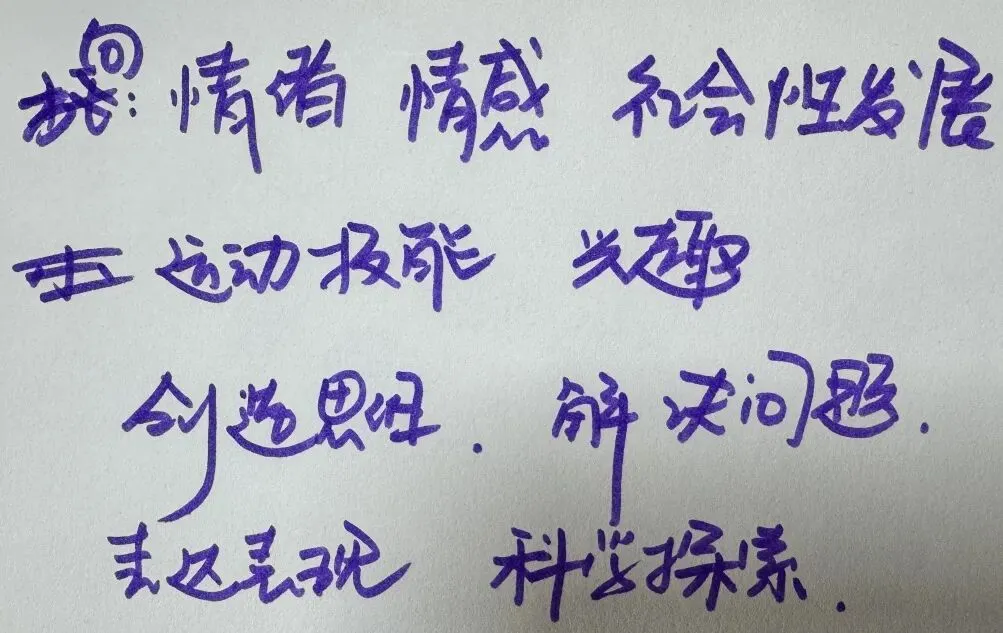 : 情绪 情感 社会性发展
运动技能 兴趣
创造思维. 解决问题.
表达表现 科学探索.